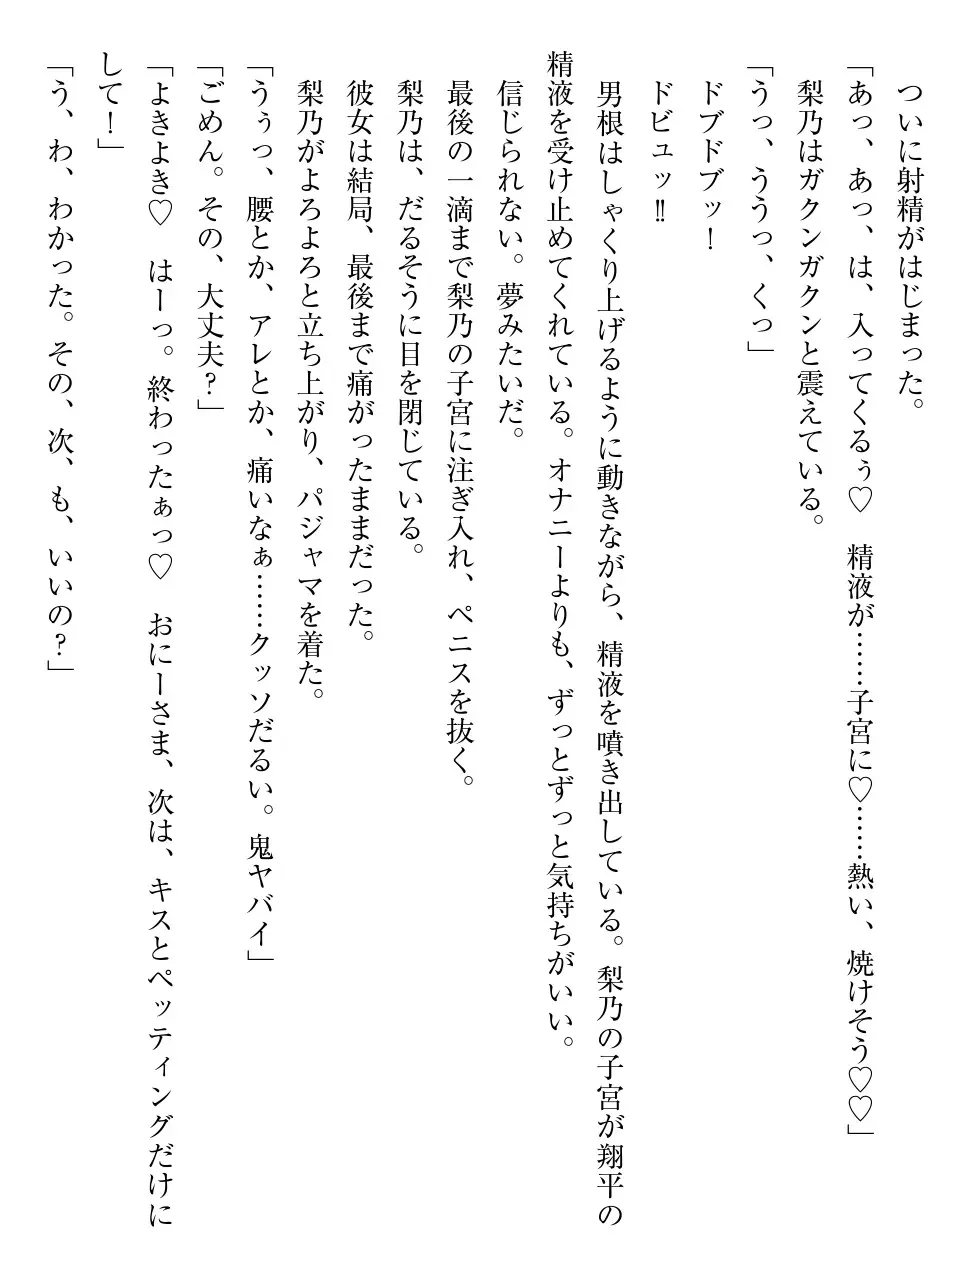 ついに射精がはじまった。
「あっ、あっ、は、入ってくるぅ♡　精液が……子宮に♡……熱い、焼けそう♡♡」
梨乃はガクンガクンと震えている。
「うっ、ううっ、くっ」
ドブドブッ！
ドビュッ‼
男根はしゃくり上げるように動きながら、精液を噴き出している。梨乃の子宮が翔平の
精液を受け止めてくれている。オナニーよりも、ずっとずっと気持ちがいい。
信じられない。夢みたいだ。
最後の一滴まで梨乃の子宮に注ぎ入れ、ペニスを抜く。
梨乃は、だるそうに目を閉じている。
彼女は結局、最後まで痛がったままだった。
梨乃がよろよろと立ち上がり、パジャマを着た。
「うぅっ、腰とか、アレとか、痛いなぁ……クッソだるい。鬼ヤバイ」
「ごめん。その、大丈夫？」
「よきよき♡　はーっ。終わったぁっ♡　おにーさま、次は、キスとペッティングだけに
して！」
「う、わ、わかった。その、次、も、いいの？」